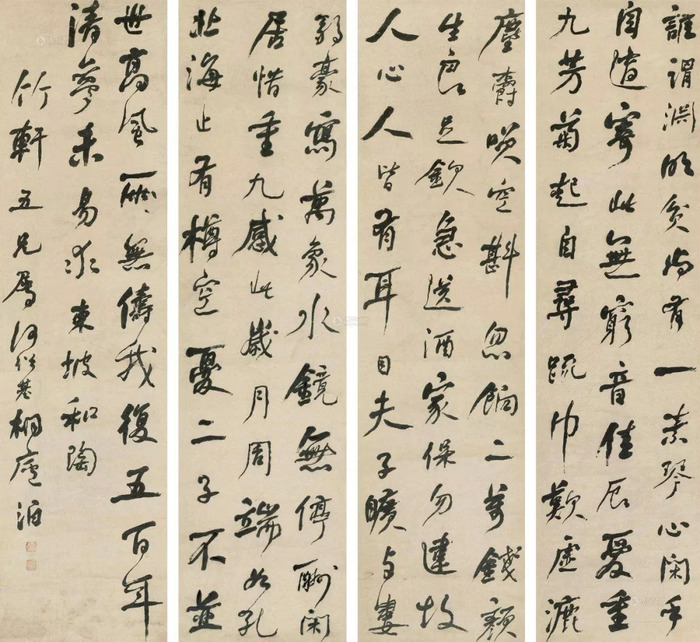 誰謂淵明貧尚有一素琴心閑手
自適寄此無窮音佳辰愛重
九芳菊起自尋疏巾歎虛漉
塵爵笑空斟忽餉二万錢顏
生良足欽急送酒家保勿違故
人心人皆有耳目夫子曠与婁
弱豪寫萬象水鏡無停酬閑
居惜重九感此歲月周端如孔
北海止有樽空憂二子不並
世高風兩無儔我復五百年
清夢未易求東坡和陶
竹軒五兄屬何紹基桐廬泊